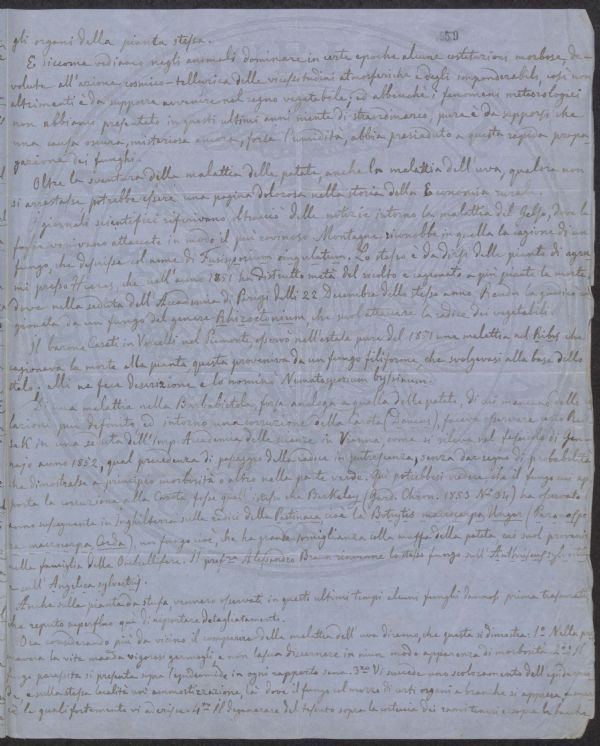 59
gli organi della pianta stessa.
E siccome vediamo negli animali dominare in certe epoche alcune costituzioni morbose, de-
volute all'azione cosmico-tellurica delle vicissitudini atmosferiche e degli imponderabili, così non
altrimenti è da supporre avvenire nel regno vegetabile; ed abbenche i fenomeni meteorologici
non abbiano presentato in questi ultimi anni niente di straordinario, pure è da supporsi che
una causa oscura, misteriosa ancora, forse l'umidità, abbia presieduto a questa rapida propa-
gazione dei funghi.
Oltre la sventura della malattia delle patate, anche la malattia dell'uva, qualora non
si arrestasse potrebbe essere una pagina dolorosa nella storia della Economia rurale.
I giornali scientifici riferivano delle notizie intorno la malattia del Gelso, dove le
venivano attaccate in modo il più rovinoso. Montagne riconobbe in quella la cagione di un
fungo, che definisse col nome di Fusisporium cingulatum. Lo stesso è da dirsi delle piante di
mi presso che nell'anno 1851 ha distrutto metà del raccolto e cagionato a più piante la morte
dove nella seduta dell'Accademia di Parigi delli 22 Decembre dello stesso anno
gionata da un fungo del genere Rhizoctonium che suol attaccare la radice dei vegetabili.
Il barone Cesati in Vercelli nel Piemonte, osservò nell'estate pure del 1851 una malattia nel Ribes che
cagionava la morte alla pianta, questa proveniva da un fungo filiforme che svolgevasi alla base dello
stelo; elli ne fece descrizione e lo nominò byssinum.
Di una malattia nella Barbabietola, forse analoga a quella delle patate, di cui mancano delle
lazioni più definite, ed intorno una corruzione della Carota (Daucus), faceva osservare
in una seduta dell'Imp. Accademia delle scienze in Vienna, come si rileva nel fascicolo di Gen-
najo anno 1852, qual precedenza di passaggio della radice in putrescenza, senza dar segno di probabilità
che dimostrasse a principio morbosità o altro nella parte verde. Qui potrebbesi vedere, se il fungo che ap-
porta la corruzione alla Carota fosse quell'istesso che Berkeley (Gard. Chron. 1853 N° 34) ha osservato
anno susseguente in Inghilterra sulle radici della Pastinaca cioè la Botrytis macrocarpa Unger (Perono-
ra macrocarpa Corda), un fungo cioè, che ha grande somiglianza colla muffa della patata che suol provenire
nella famiglia delle Ombellifere. Il prof.re Alessandro Braun rinvenne lo stesso fungo sull'Anthriscus sylvestris
e sull'Angelica sylvestris.
Anche sulla pianta da stufa, vennero osservati in questi ultimi tempi alcuni funghi dannosi prima trascurati
che reputo superfluo qui di riportare dettagliatamente.
Ora considerando più da vicino il complesso della malattia dell'uva diremo, che questa si dimostra: 1° Nella pri-
mavera la vite manda vigorosi germogli e non lascia discernere in niun modo apparenza di morbosità. 2do Il
fungo parasita si presenta sopra l'epidermide in ogni rapporto sana. 3zo Vi succede uno scoloramento dell'epidermi-
de, e sulla stessa località un'ammortizzazione, là dove il fungo col mezzo di certi organi a branche si appressa
le quali fortemente vi aderisce. 4to Il degenerare del tessuto sopra la corteccia dei rami teneri e sopra la